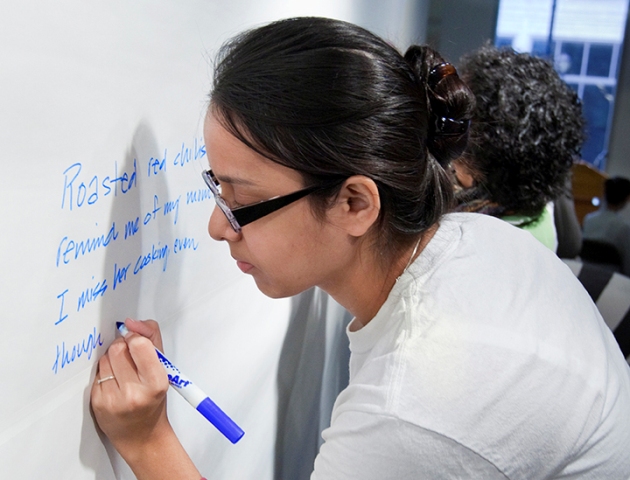 Roasted red chilis
remind me of my mom
I miss her cooking even
though